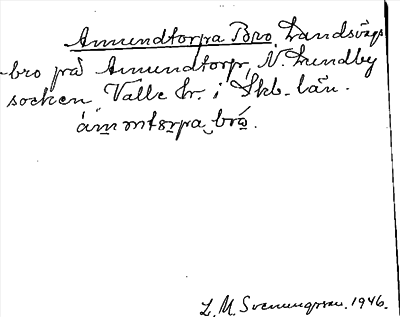 Amundtorpa Bro, Landsvägs
-bro på Amundtorp, N. Lundby
socken, Valle hr. i Skb. län.
L. M. Svenungsson. 1946.